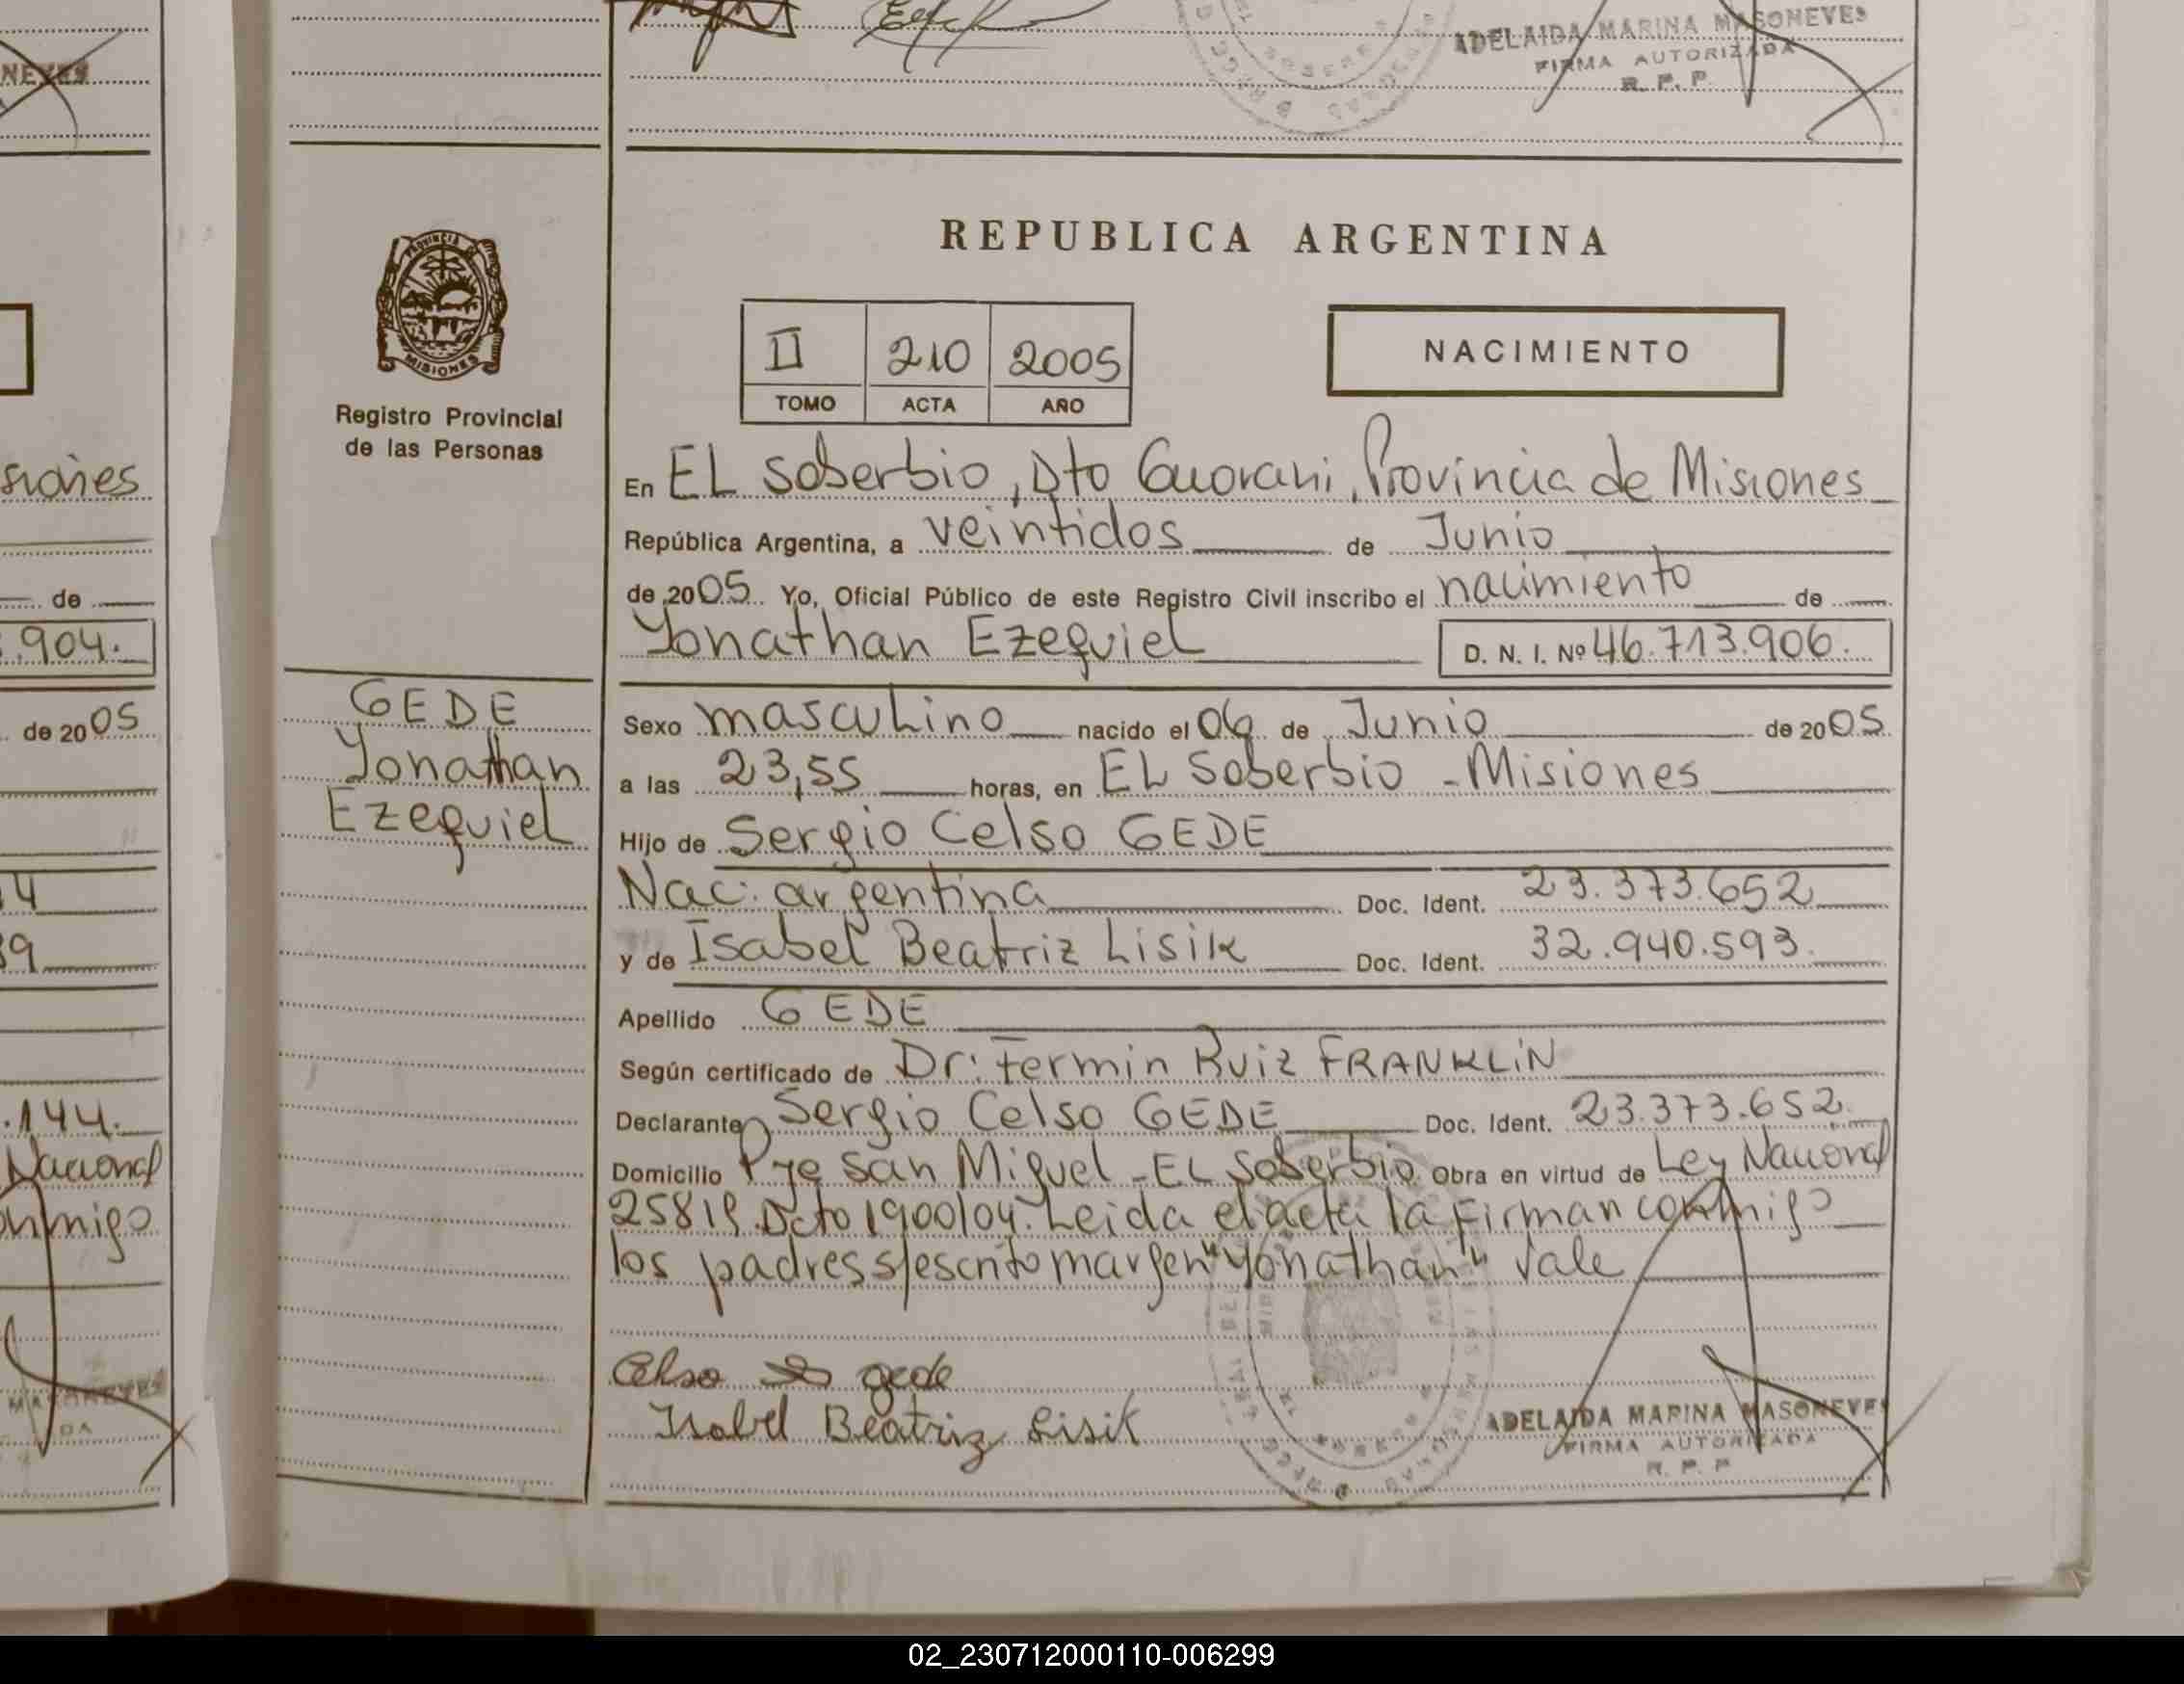 NEVES
ADELAIDA MARINA MASONEVES
FIRMA AUTORIZADA
R. P. P.
siones
de
.904.
de 2005
14
39
.144.
Nacional
onmigo
MASONEVES
DA
PROVINCIA
MISIONES
Registro Provincial
de las Personas
GEDE
Yonathan
Ezequiel
REPUBLICA ARGENTINA
II 210 2005
TOMO ACTA AÑO
NACIMIENTO
En EL Soberbio, Dto Guarani, Provincia de Misiones
República Argentina, a veintidos de Junio
de 2005. Yo, Oficial Público de este Registro Civil inscribo el nacimiento de
Yonathan Ezequiel D. N. I. Nº 46.713.906.
Sexo masculino nacido el 06 de Junio de 2005.
a las 23,55 horas, en EL Soberbio - Misiones
Hijo de Sergio Celso GEDE
Nac: argentina Doc. Ident. 23.373.652
y de Isabel Beatriz Lisik Doc. Ident. 32.940.593.
Apellido GEDE
Según certificado de Dr: Fermin Ruiz FRANKLIN
Declarante Sergio Celso GEDE Doc. Ident. 23.373.652.
Domicilio Pje San Miguel - EL Soberbio. Obra en virtud de Ley Nacional
25819. Dcto 1900/04. Leida el acta la Firman conmigo
los padres s/escrito margen "Yonathan" Vale
Celso gede
Isabel Beatriz Lisik
ADELAIDA MARINA MASONEVES
FIRMA AUTORIZADA
R. P. P.
02_230712000110-006299